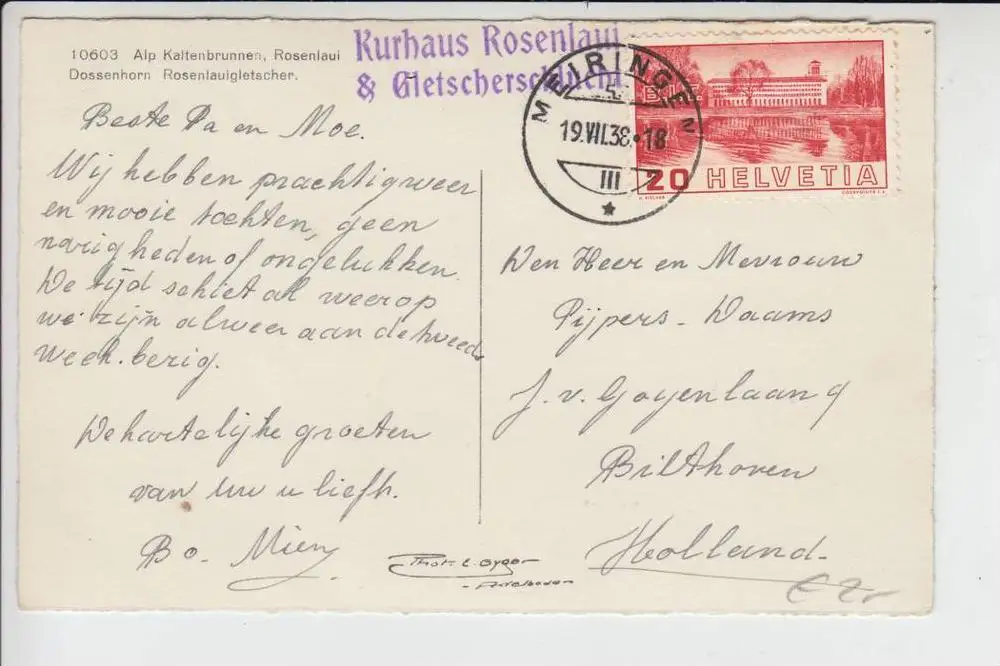 10603 Alp Kaltenbrunnen, Rosenlaui
Dossenhorn Rosenlauigletscher.
Kurhaus Rosenlaui
& Gletscherschlucht
MEIRINGEN
19.VII.38.•18
III
20 HELVETIA
COURVOISIER S.A.
Beste Pa en Moe.
Wij hebben prachtig weer
en mooie tochten, geen
narigheden of ongelukken.
De tijd schiet al weer op
we zijn alweer aan de tweede
week. berig.
De hartelijke groeten
van Uw u liefh.
Bo. Mien
Phot. E. Gyger
- Adelboden
Den Heer en Mevrouw
Pijpers - Daams
J. v. Goyenlaan 9
Bilthoven
Holland.